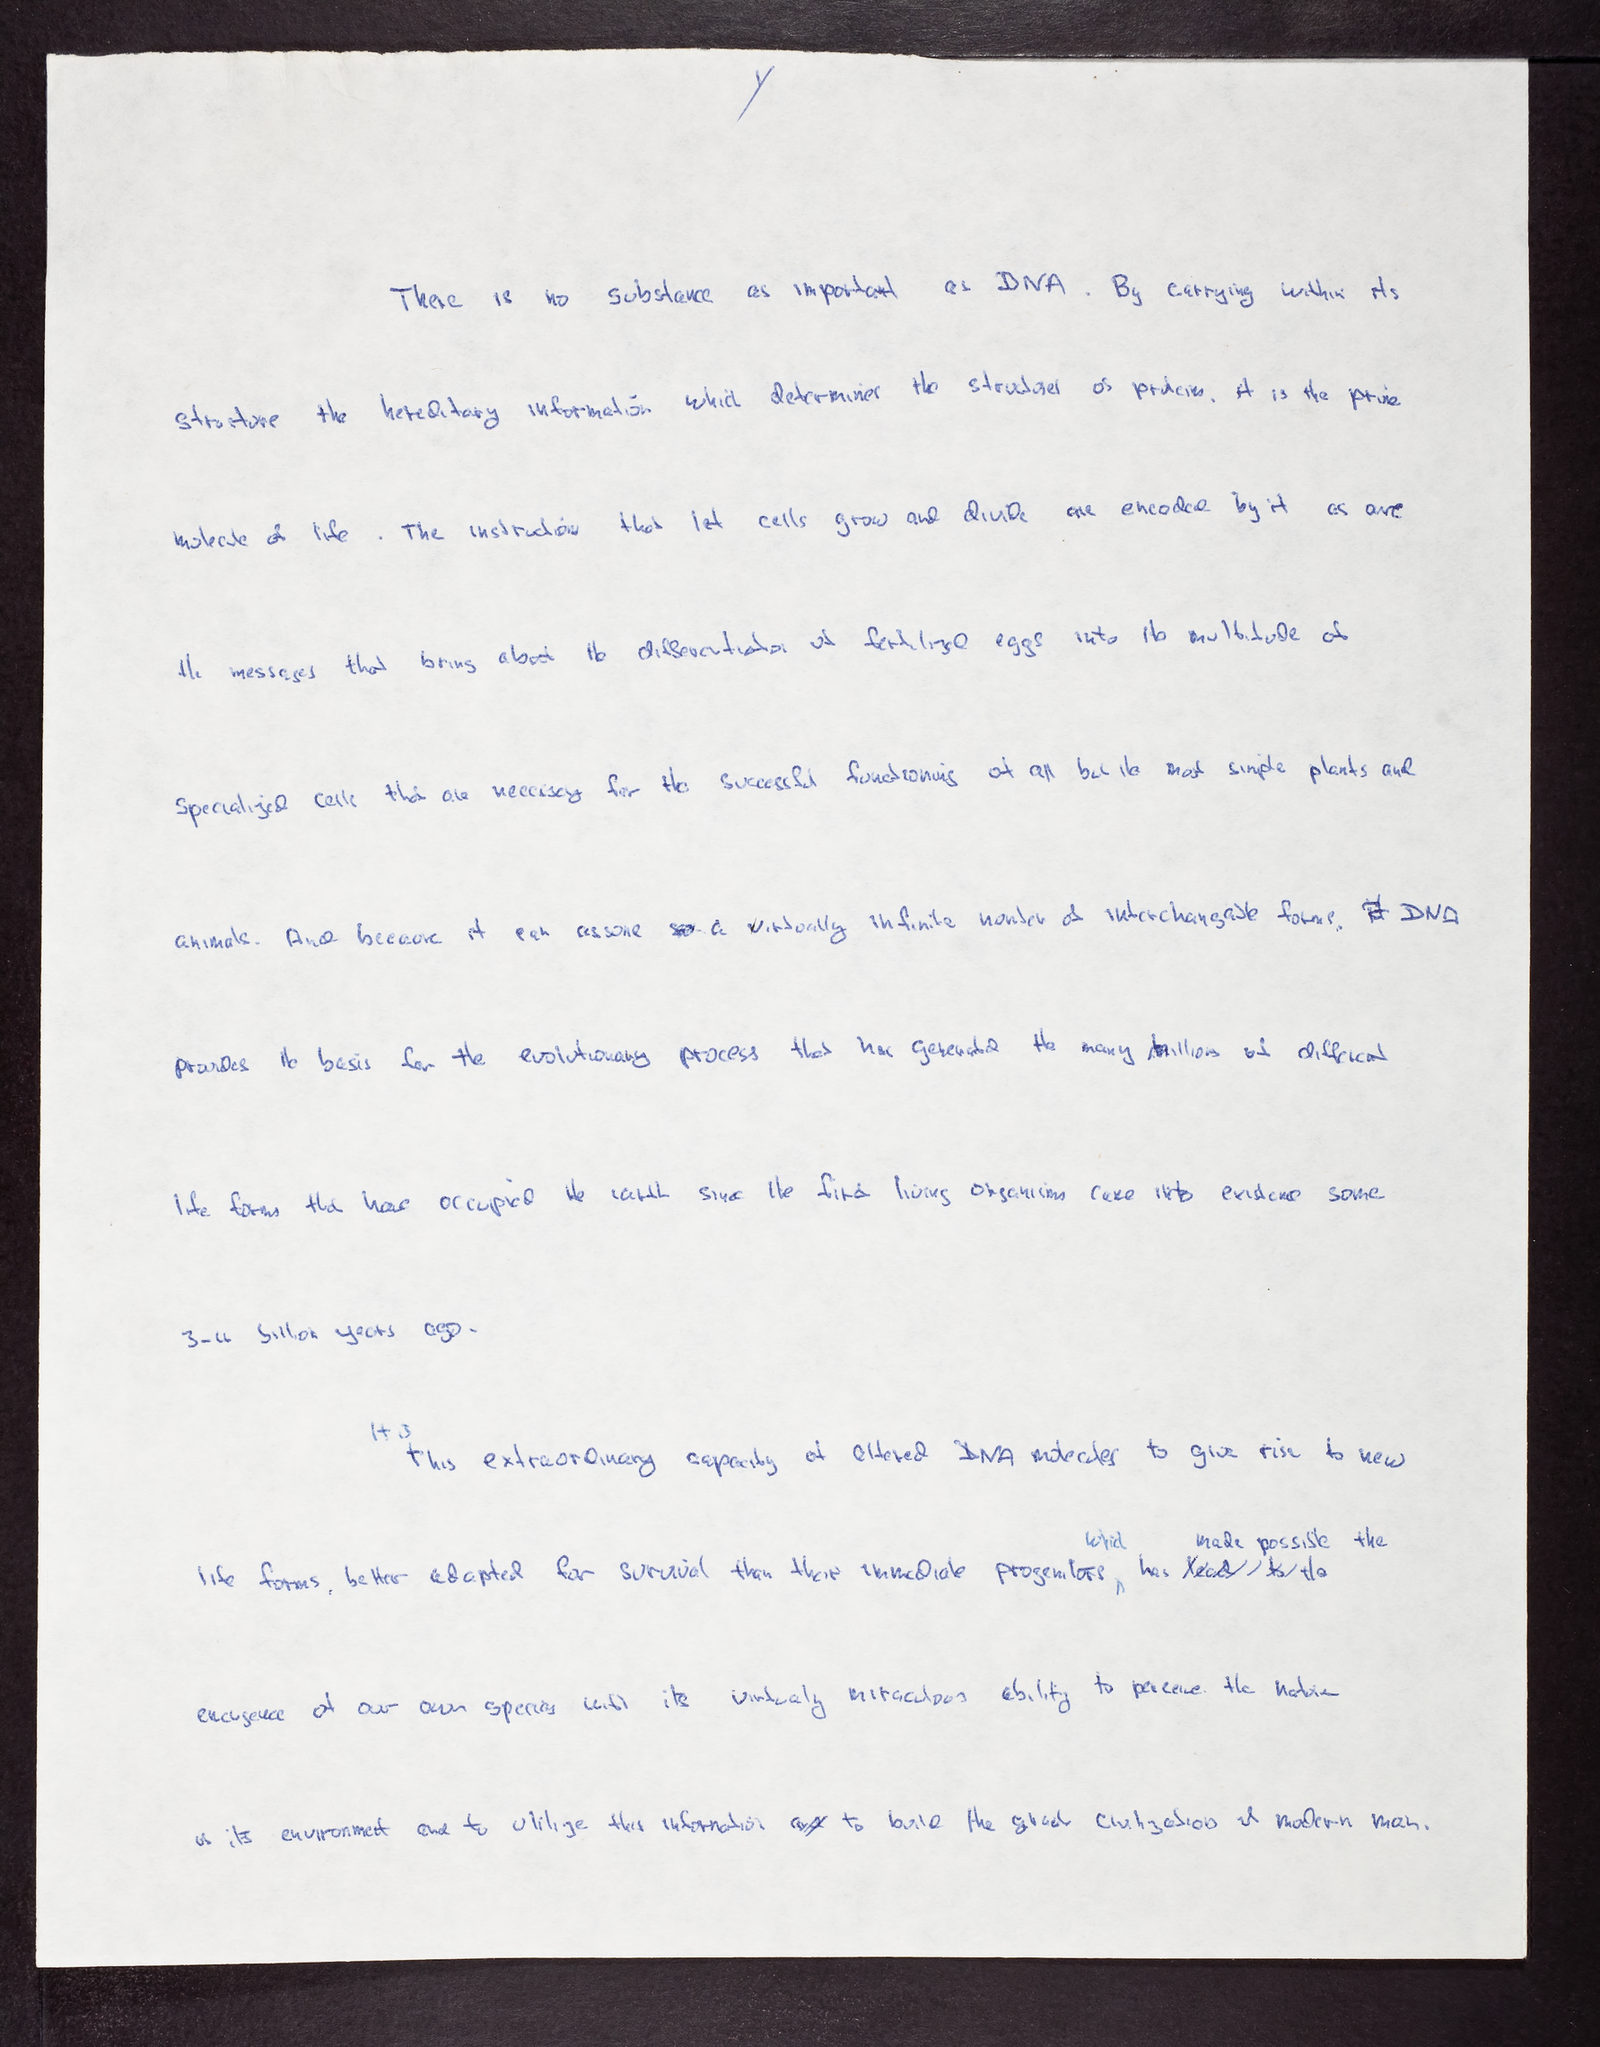 There is no substance as important as DNA. By carrying within its
structure the hereditary information which determines the structures of proteins, it is the prime
molecule of life. The instruction that let cells grow and divide are encoded by it as are
the messages that bring about the differentiation of fertilized eggs into the multitude of
specialized cells that are necessary for the successful functioning of all but the most simple plants and
animals. And because it can assume so a virtually infinite number of interchangeable forms, it DNA
provides the basis for the evolutionary process that has generated the many millions of different
life forms that have occupied the earth since the first living organisms came into existence some
3-4 billion years ago.
It is
this extraordinary capacity of altered DNA molecules to give rise to new
which made possible the
life forms, better adapted for survival than their immediate progenitors, has lead to the
emergence of our own species with its virtualy miraculous ability to perceive the nature
of its environment and to utilize this information and to build the great civilizations of modern man.